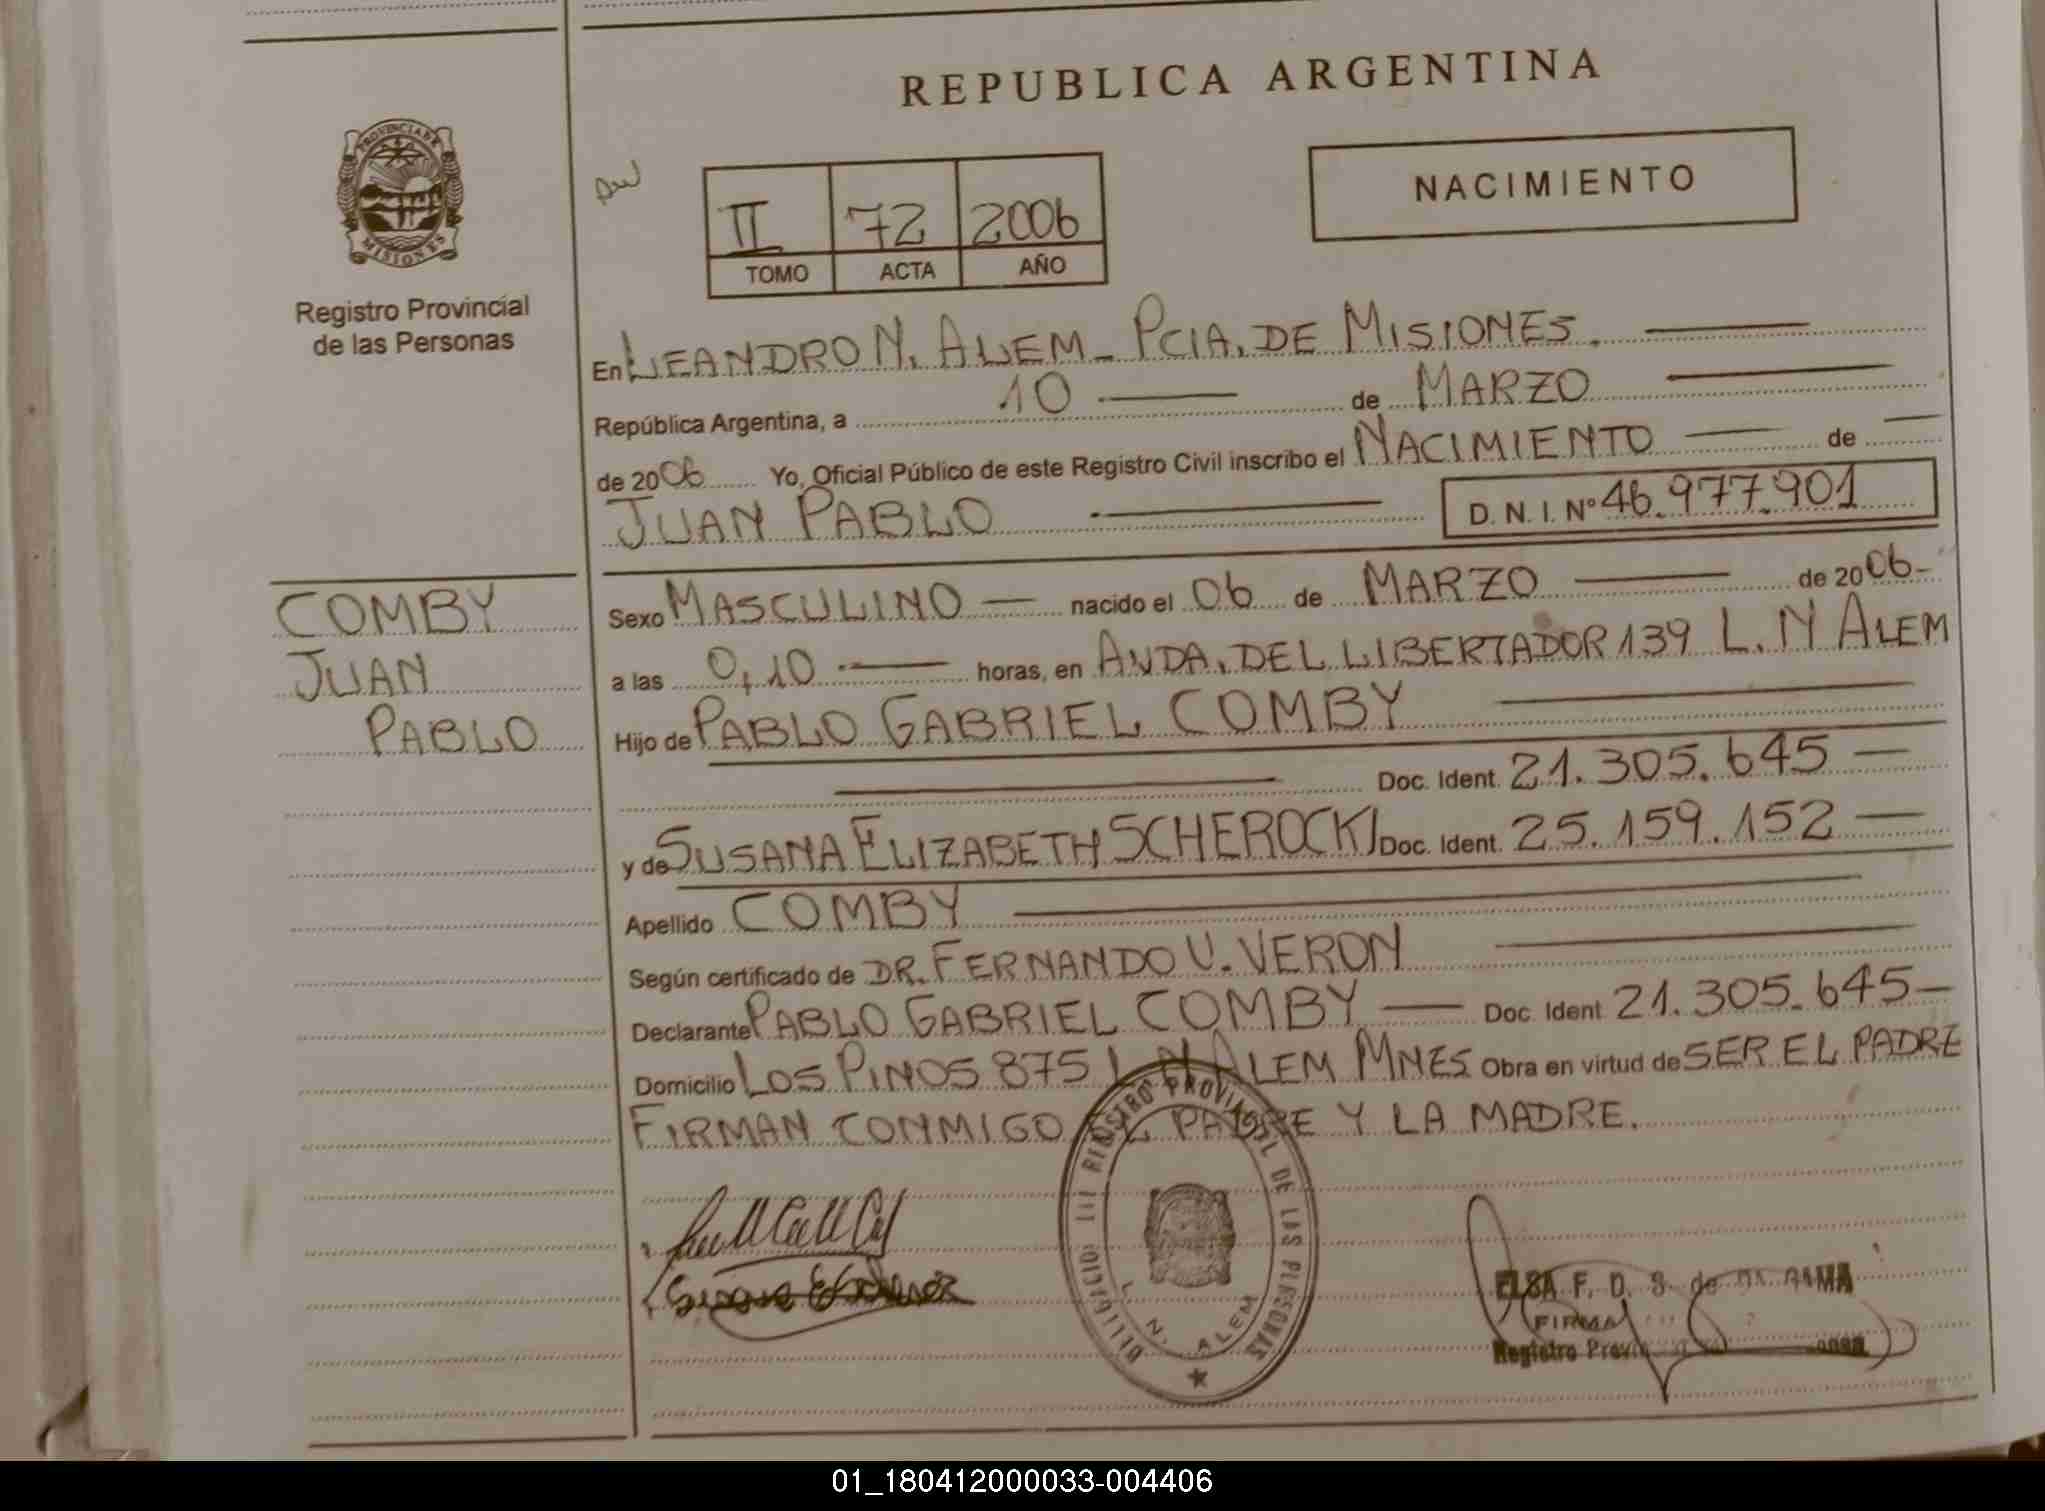 REPUBLICA ARGENTINA
PROVINCIA DE
MISIONES
Registro Provincial
de las Personas
II 72 2006
TOMO ACTA AÑO
NACIMIENTO
En LEANDRO N. ALEM - PCIA. DE MISIONES.
República Argentina, a 10 de MARZO
de 2006 Yo, Oficial Público de este Registro Civil inscribo el NACIMIENTO de
JUAN PABLO D. N. I. Nº 46.977.901
COMBY
JUAN
PABLO
Sexo MASCULINO nacido el 06 de MARZO de 2006
a las 0,10 horas, en AVDA. DEL LIBERTADOR 139 L. N ALEM
Hijo de PABLO GABRIEL COMBY
Doc. Ident. 21.305.645
y de SUSANA ELIZABETH SCHEROCKI Doc. Ident. 25.159.152
Apellido COMBY
Según certificado de DR. FERNANDO V. VERON
Declarante PABLO GABRIEL COMBY Doc. Ident 21.305.645
Domicilio LOS PINOS 875 L N ALEM MNES Obra en virtud de SER EL PADRE
FIRMAN CONMIGO EL PADRE Y LA MADRE.
REGISTRO PROVINCIAL DE LAS PERSONAS
L. N. ALEM
ELSA F. D. S. de
FIRMA
Registro
01_180412000033-004406